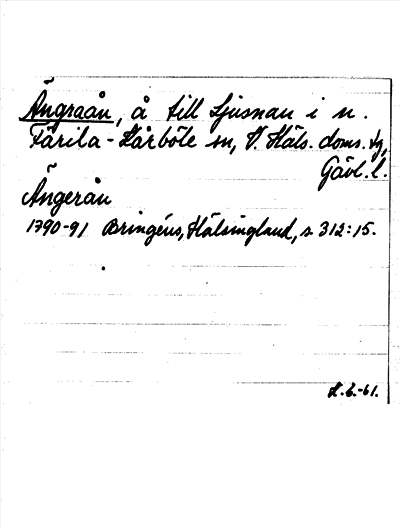 Ängraån, å till Ljusnan i n.
Färila-Kårböle sn, V. Häls. doms. tg,
Gävl. l.
Ängerån
1790-91 Bringéus, Hälsingland, s. 312:15.
H. G.-61.